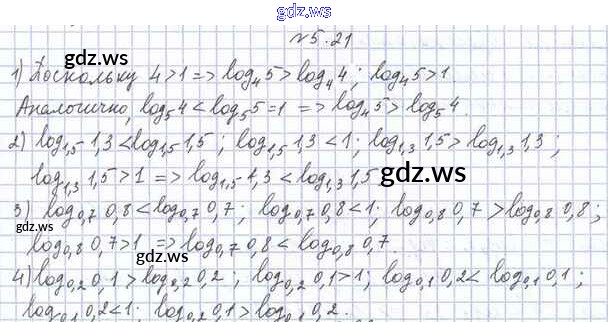 gdz.ws
№5.21
gdz.ws
1) Поскольку 4>1 => log₄5 > log₄4; log₄5>1.
Аналогично, log₅4 < log₅5 = 1 => log₄5 > log₅4.
2) log₁,₅1,3 < log₁,₅1,5; log₁,₅1,3 < 1; log₁,₃1,5 > log₁,₃1,3;
log₁,₃1,5 > 1 => log₁,₅1,3 < log₁,₃1,5
gdz.ws
3) log₀,₇0,8 < log₀,₇0,7; log₀,₇0,8 < 1; log₀,₈0,7 > log₀,₈0,8;
gdz.ws
gdz.ws
log₀,₈0,7 > 1 => log₀,₇0,8 < log₀,₈0,7.
gdz.ws
4) log₀,₂0,1 > log₀,₂0,2; log₀,₂0,1 > 1; log₀,₁0,2 < log₀,₁0,1;
log₀,₁0,2 < 1; log₀,₂0,1 > log₀,₁0,2.
gdz.ws